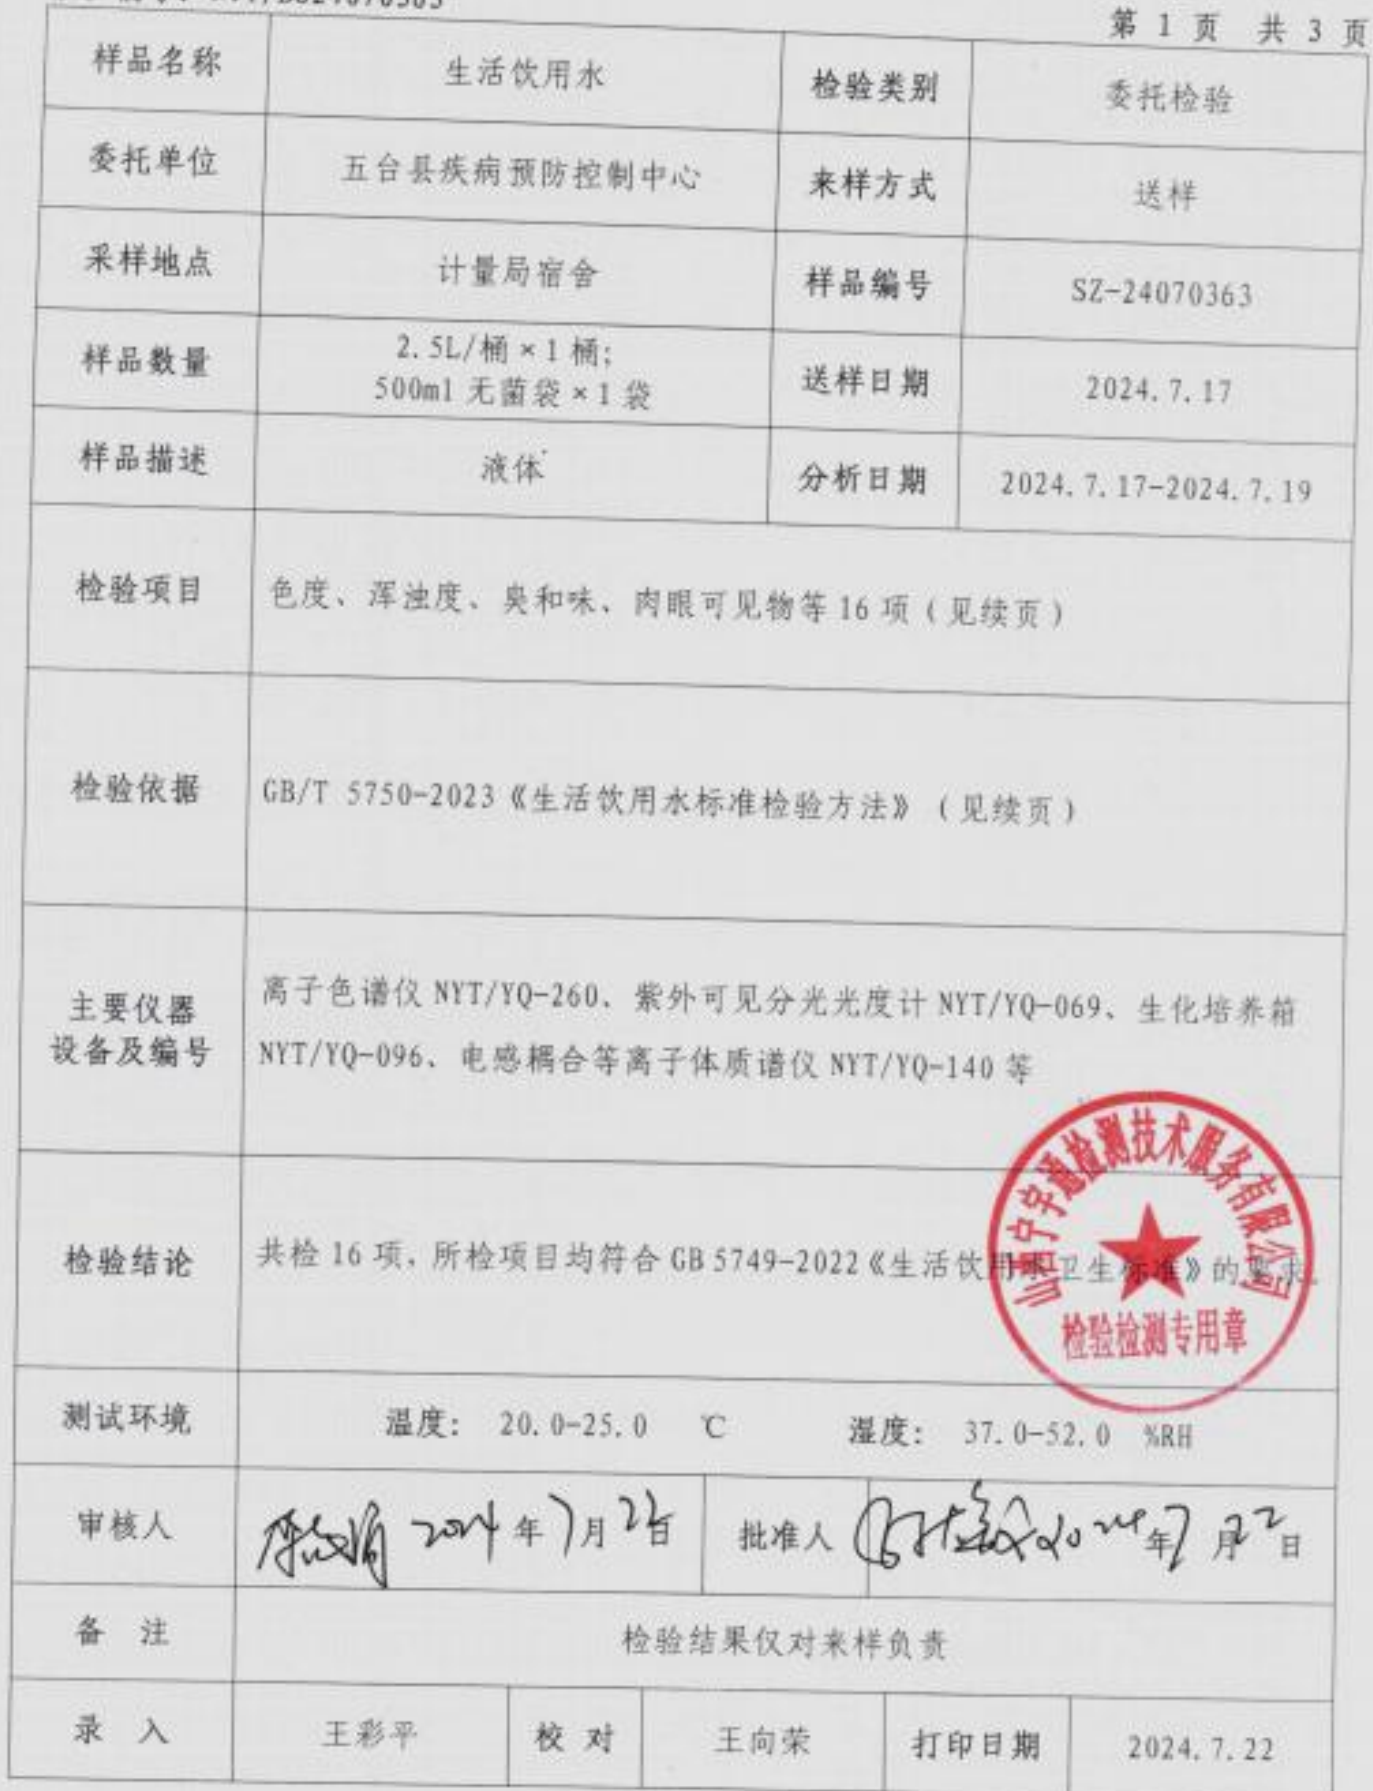 第 1 页 共 3 页
样品名称 生活饮用水 检验类别 委托检验
委托单位 五台县疾病预防控制中心 来样方式 送样
采样地点 计量局宿舍 样品编号 SZ-24070363
样品数量 2.5L/桶×1桶;
500ml 无菌袋×1 袋 送样日期 2024.7.17
样品描述 液体 分析日期 2024.7.17-2024.7.19
检验项目 色度、浑浊度、臭和味、肉眼可见物等 16 项（见续页）
检验依据 GB/T 5750-2023《生活饮用水标准检验方法》（见续页）
主要仪器
设备及编号
离子色谱仪 NYT/YQ-260、紫外可见分光光度计 NYT/YQ-069、生化培养箱
NYT/YQ-096、电感耦合等离子体质谱仪 NYT/YQ-140 等
检验结论 共检 16 项，所检项目均符合 GB 5749-2022《生活饮用水卫生标准》的要求。
宇通检测技术服务有限公司
检验检测专用章
测试环境 温度: 20.0-25.0 ℃ 湿度: 37.0-52.0 %RH
审核人 2024 年 7 月 22 日 批准人 2024 年 7 月 22 日
备 注 检验结果仅对来样负责
录 入 王彩平 校 对 王向荣 打印日期 2024.7.22